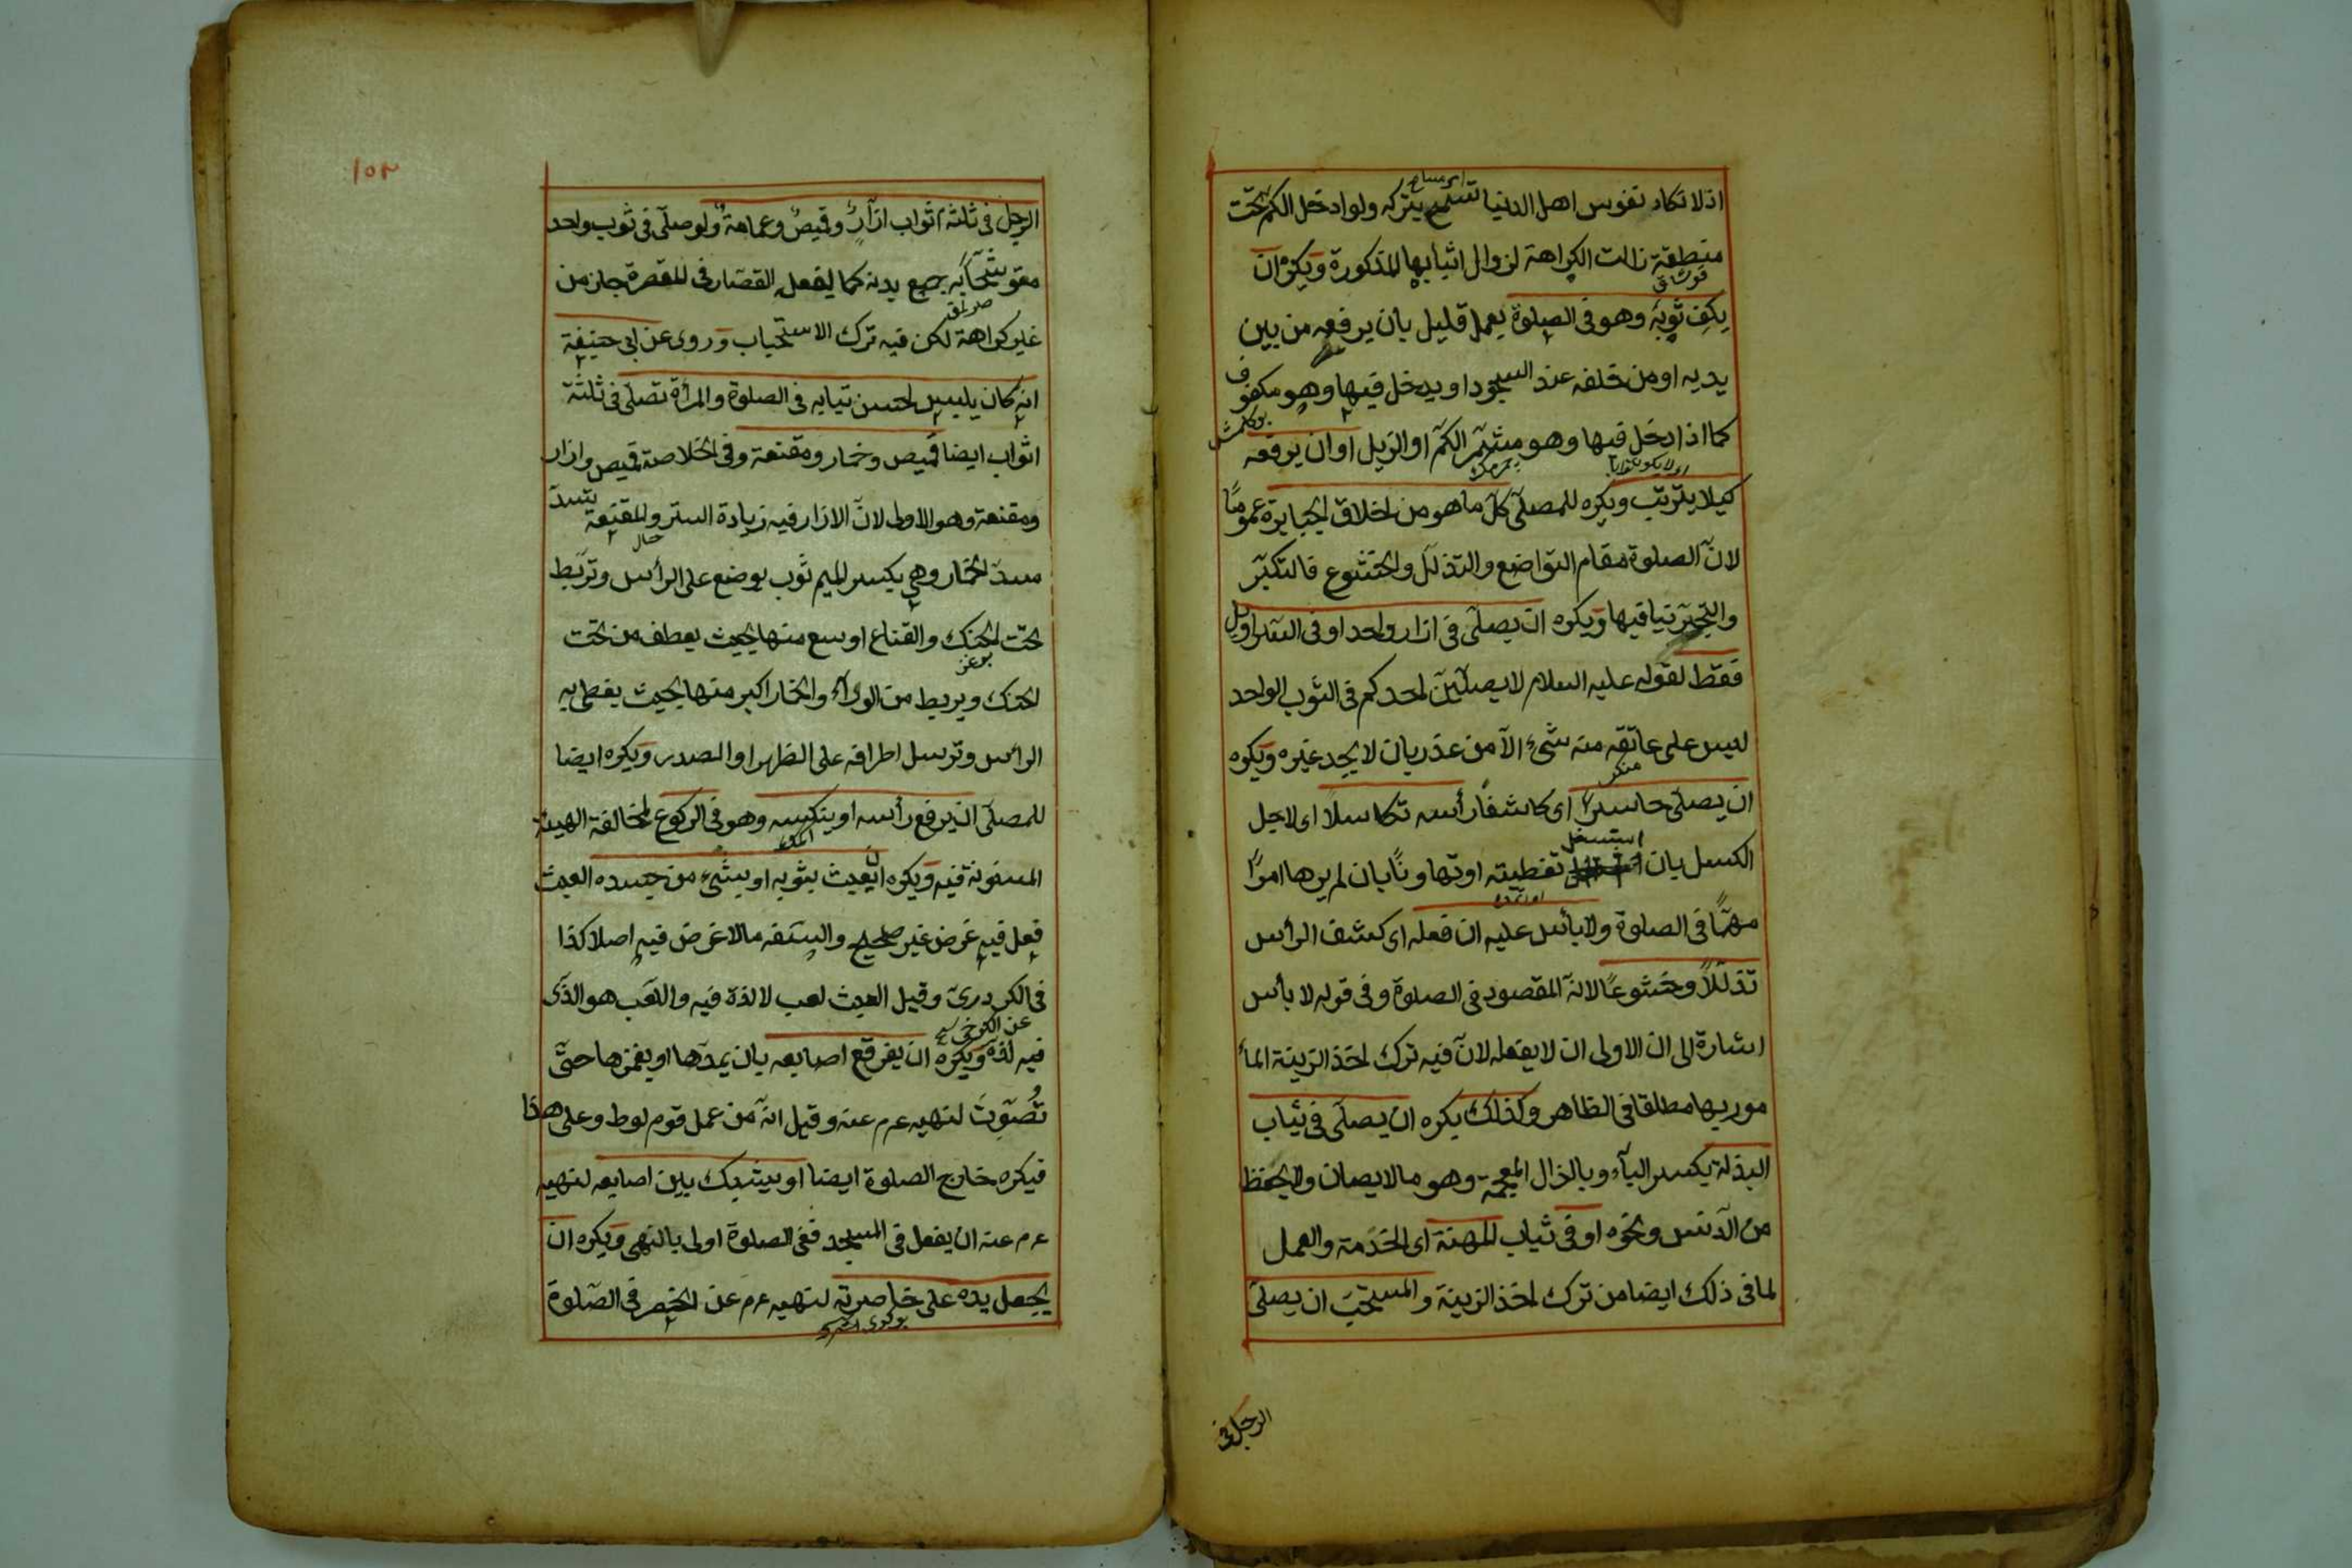 اذ لا تكاد نفوس اهل الدنيا تسمح بتركه ولو ادخل الكم تحت
منطقة زالت الكراهة لزوال اثيابها المذكورة ويكره ان
يكف ثوبه وهو فى الصلوة بعمل قليل بان يرفعه من بين
يديه او من خلفه عند السجود او يدخل فيها وهو مكفوف
كما اذا دخل فيها وهو مشمّر الكمّ او الذيل او ان يرفعه
كيلا يترتب ويكره للمصلّى كلّ ما هو من اخلاق الجبابرة عموما
لانّ الصلوة مقام التواضع والتذلّل والخشوع فالتكبّر
والتجبّر تنافيها ويكره ان يصلّى فى ازار واحد او فى السراويل
فقط لقوله عليه السلام لا يصلّينّ احدكم فى الثوب الواحد
ليس على عاتقه منه شئ الّا من عذر بان لا يجد غيره ويكره
ان يصلّى حاسرا اى كاشفا رأسه تكاسلا اى لاجل
الكسل بان استسقل تغطيته او تهاونا بان لم يرها امرا
مهمّا فى الصلوة ولا بأس عليه ان فعله اى كشف الرأس
تذلّلا وخشوعا لانّه المقصود فى الصلوة وفى قوله لا بأس
اشارة الى ان الاولى ان لا يفعله لانّ فيه ترك اخذ الزينة المأ
مور بها مطلقا فى الظاهر وكذلك يكره ان يصلّى فى ثياب
البذلة بكسر الباء وبالذال المعجمة وهو ما لا يصان ولا يحفظ
من الدنس ونحوه او فى ثياب المهنة اى الخدمة والعمل
لما فى ذلك ايضا من ترك اخذ الزينة والمستحبّ ان يصلّى
الرجل فى
١٥٣
الرجل فى ثلثة اثواب ازار وقميص وعمامة ولو صلّى فى ثوب واحد
متوشّحا به جميع بدنه كما يفعله القصّار فى المقصرة جاز من
غير كراهة لكن فيه ترك الاستحباب وروى عن ابى حنيفة
انه كان يلبس احسن ثيابه فى الصلوة والمرأة تصلّى فى ثلثة
اثواب ايضا قميص وخمار ومقنعة وفى الخلاصة قميص وازار
ومقنعة وهو الاولى لانّ الازار فيه زيادة الستر والمقنعة تسدّ
مسدّ الخمار وهى بكسر الميم ثوب يوضع على الرأس وتربط
تحت الحنك والقناع اوسع منها بحيث يعطف من تحت
الحنك ويربط من الوراء والخمار اكبر منها بحيث يغطى به
الرأس وترسل اطرافه على الظهر او الصدر ويكره ايضا
للمصلّى ان يرفع رأسه او ينكسه وهو فى الركوع لمخالفة الهيئة
المسنونة فيه ويكره ان يعبث بثوبه او بشئ من جسده العبث
فعل فيه غرض غير صحيح والسفه ما لا غرض فيه اصلا كذا
فى الكردرىّ وقيل العبث لعب لا لذة فيه واللعب هو الذى
عن الكرخى
فيه لذة ويكره ان يفرقع اصابعه بان يمدّها او يغمزها حتّى
تُصَوّتَ لنهيه عم عنه وقيل انّه من عمل قوم لوط وعلى هذا
فيكره خارج الصلوة ايضا او يشبك بين اصابعه لنهيه
عم عنه ان يفعل فى المسجد ففى الصلوة اولى بالنهى ويكره ان
يجعل يده على خاصرته لنهيه عم عن الخصر فى الصلوة